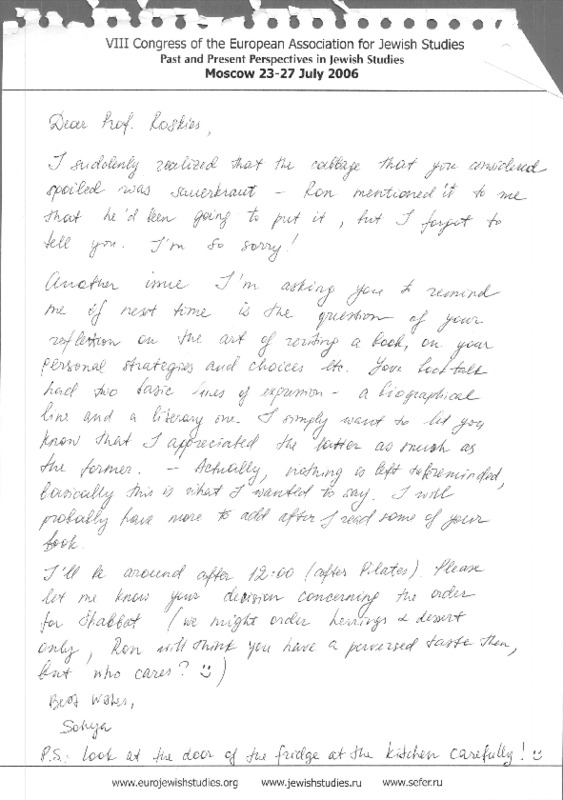 VIII Congress of the European Association for Jewish Studies
Past and Present Perspectives in Jewish Studies
Moscow 23-27 July 2006
Dear Prof. Roskies,
I suddenly realized that the cabbage that you considered
spoiled was sauerkraut – Ron mentioned it to me
that he'd been going to put it, but I forgot to
tell you. I'm so sorry!
Another issue I'm asking you to remind
me of next time is the question of your
reflection on the art of writing a book, on your
personal strategies and choices etc. Your book talk
had two basic lines of expression – a biographical
line and a literary one. I simply want to let you
know that I appreciated the latter as much as
the former. – Actually, nothing is left to be reminded,
basically this is what I wanted to say. I will
probably have more to add after I read some of your
book.
I'll be around after 12:00 (after Pilates). Please
let me know your decision concerning the order
for Shabbat (we might order herrings & desert
only, Ron will think you have a perversed taste then,
but who cares? ☺)
Best Wishes,
Sonya
P.S.: look at the door of the fridge at the kitchen carefully! ☺
www.eurojewishstudies.org www.jewishstudies.ru www.sefer.ru